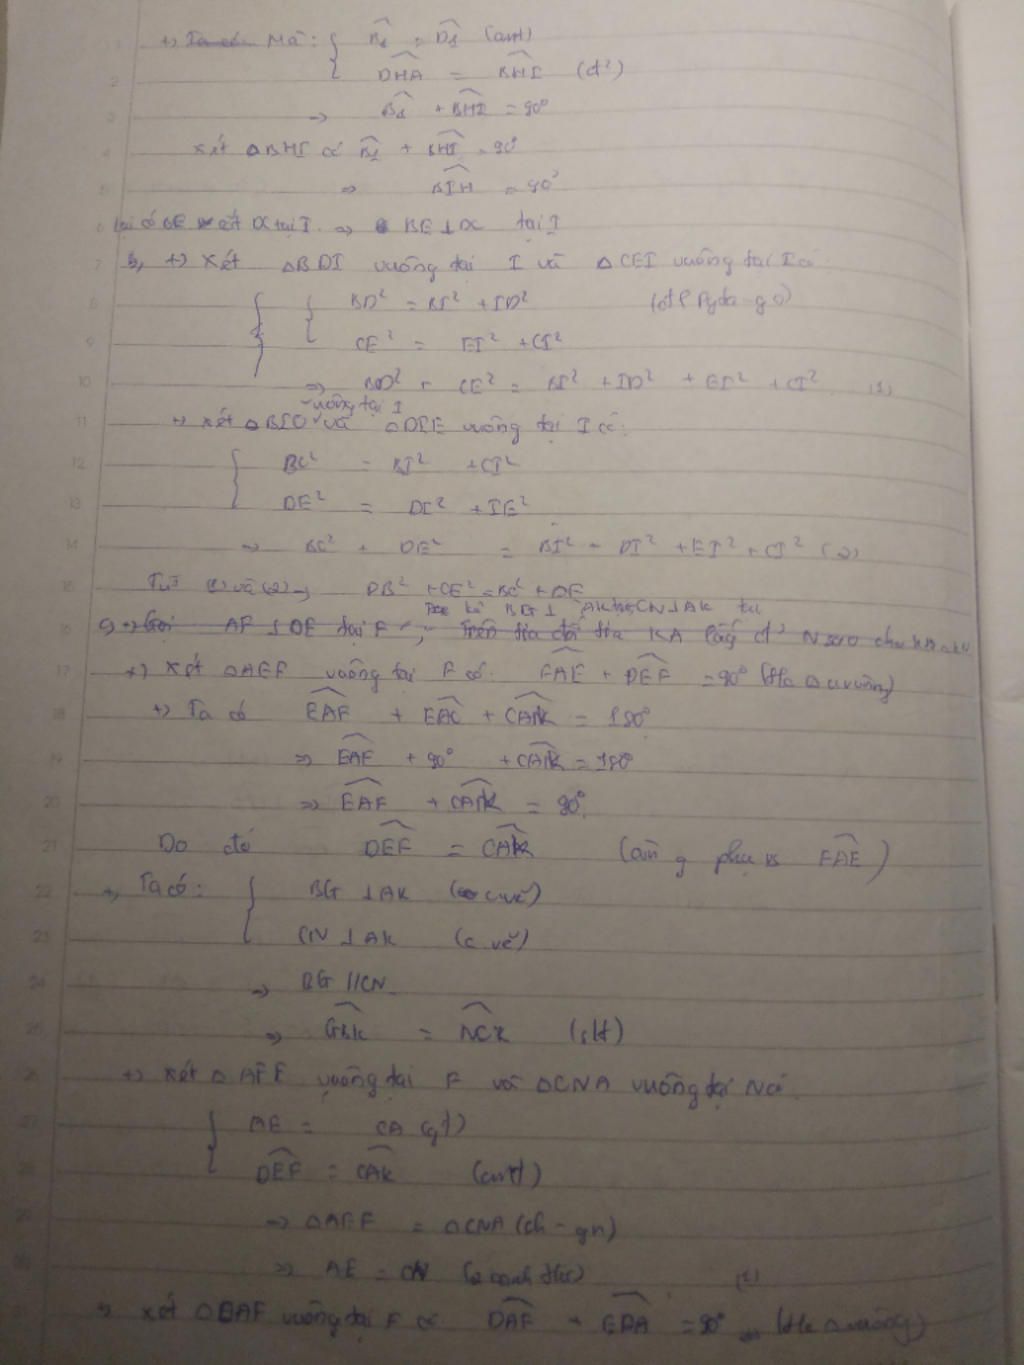 +) Ta có Mà: { B̂₁ = D̂₁ (cmt)
DHA = BHI (đ²)
=> B̂₁ + BHI = 90°
Xét △BHI có B̂₁ + BHI = 90°
=> BIH = 90°
lại có BE cắt DC tại I => BE ⊥ DC tại I
b, +) Xét △BDI vuông tại I và △CEI vuông tại I có:
BD² = BI² + ID² (đl Pyta-go)
CE² = EI² + CI²
=> BD² + CE² = BI² + ID² + EI² + CI² (1)
vuông tại I
+) Xét △BIC và △DIE vuông tại I có:
BC² = BI² + CI²
DE² = DI² + IE²
=> BC² + DE² = BI² + DI² + EI² + CI² (2)
Từ (1) và (2) => DB² + CE² = BC² + DE
kẻ BG ⊥ AK tại CN ⊥ AK tại
c, +) Gọi AF ⊥ DE tại F, Trên tia đối tia KA lấy đ' N sao cho
+) Xét △AEF vuông tại F có: FAE + DEF = 90° (t/c △ vuông)
+) Ta có EAF + EAC + CAK = 180°
=> EAF + 90° + CAK = 180°
=> EAF + CAK = 90°.
Do đó DEF = CAK (cùng phụ vs FAE)
+, Ta có: { BG ⊥ AK (c vẽ)
CN ⊥ AK (c vẽ)
=> BG // CN
=> GBK = NCK (slt)
+) Xét △AFE vuông tại F và △CNA vuông tại N có
AE = CA (gt)
DEF = CAK (cmt)
=> △AEF = △CNA (ch - gn)
=> AE = CN (2 cạnh t/ứ) (1)
+) Xét △DAF vuông tại F có DAF + EDA = 90° (t/c △ vuông)